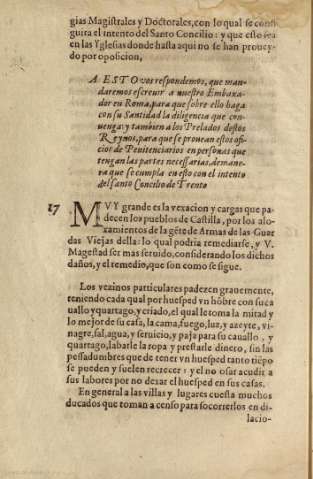 gias Magistrales y Doctorales, con lo qual se consi
guira el intento del Santo Concilio: y que esto sea
en las Yglesias donde hasta aqui no se han prouey-
do por oposicion,
A ESTO vos respondemos, que man-
daremos escreuir a nuestro Embaxa-
dor en Roma, para que sobre ello haga
con su Santidad la diligencia que con-
uenga: y tambien a los Prelados destos
Reynos, para que se prouean estos ofi-
cios de Penitenciarios en personas que
tengan las partes necessarias, de mane-
ra que se cumpla en esto con el intento
del santo Concilio de Trento
17 MVY grande es la vexacion y cargas que pa-
decen los pueblos de Castilla, por los alo-
xamientos de la gẽte de Armas de las Guar
das Viejas della: lo qual podria remediarse, y V.
Magestad ser mas seruido, considerando los dichos
daños, y el remedio, que son como se sigue.
Los vezinos particulares padezen grauemente,
teniendo cada qual por huesped vn hõbre con su ca
uallo y quartago, y criado, el qual le toma la mitad y
lo mejor de su casa, la cama, fuego, luz, y azeyte, vi-
nagre, sal, agua, y seruicio, y paja para su cauallo, y
quartago, labarle la ropa y prestarle dinero, sin las
pessadumbres que de tener vn huesped tanto tiẽpo
se pueden y suelen recrecer: y el no osar acudir a
sus labores por no dexar el huesped en sus casas.
En general a las villas y lugares cuesta muchos
ducados que toman a censo para socorrerlos en di-
lacio-